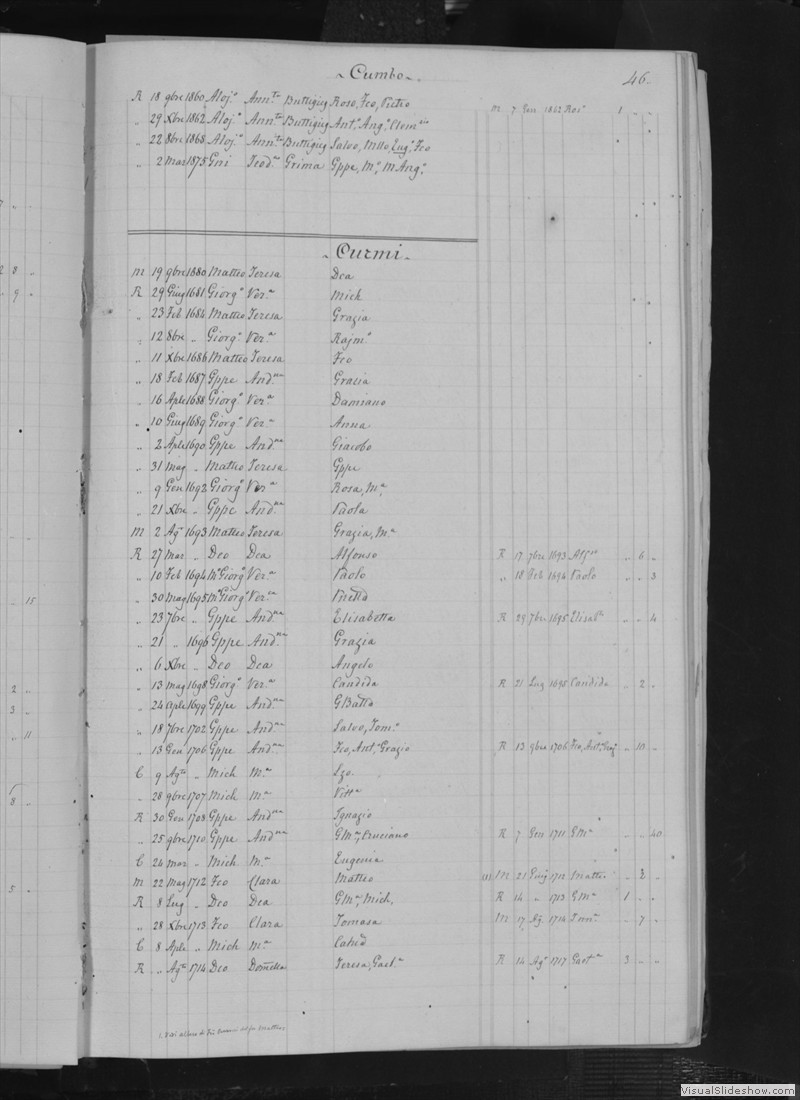 ~ Cumbo ~
46.
R 18 9bre 1860 Aloj.º Ann.ta Buttigieg Rosa, Fco, Pietro M 7 Gen 1862 Ros.ª 1 " "
" 29 Xbre 1862 Aloj.º Ann.ta Buttigieg Ant.º Ang.º Clem
" 22 8bre 1868 Aloj.º Ann.ta Buttigieg Salvo, Mllo, Eug.º Fco
" 2 Mar 1875 Gni Teod.ra Grima Gppe, M.ª, M Ang.º
~ Curmi ~
M 19 9bre 1680 Matteo Teresa Dea
R 29 Giug 1681 Giorg.º Ver.ª Mich
" 23 Feb 1684 Matteo Teresa Grazia
" 12 8bre " Giorg.º Ver.ª Rajm.º
" 11 Xbre 1686 Matteo Teresa Fco
" 18 Feb 1687 Gppe And.na Gracia
" 16 Aple 1688 Giorg.º Ver.ª Damiano
" 10 Giug 1689 Giorg.º Ver.ª Anna
" 2 Aple 1690 Gppe And.na Giacobo
" 31 Mag " Matteo Teresa Gppe
" 9 Gen 1692 Giorg.º Ver.ª Rosa, M.ª
" 21 Xbre " Gppe And.na Paola
M 2 Ag.º 1693 Matteo Teresa Grazia, M.ª
R 27 Mar " Deo Dea Alfonso R 17 7bre 1693 Alf.so " 6 "
" 10 Feb 1694 M.º Giorg.º Ver.ª Paolo " 18 Feb 1694 Paolo " " 3
" 30 Mag 1695 M.º Giorg.º Ver.ª
" 23 7bre " Gppe And.na Elisabetta R 29 7bre 1695 Elisab.ª " " 4
" 21 " 1696 Gppe And.na Grazia
" 6 Xbre " Deo Dea Angelo
" 13 Mag 1698 Giorg.º Ver.ª Candida R 21 Lug 1698 Candida " 2 "
" 24 Aple 1699 Gppe And.na GBatta
" 18 7bre 1702 Gppe And.na Salvo, Tom.º
" 13 Gen 1706 Gppe And.na Fco, Ant.º, Grazio R 13 9bre 1706 Fco, Ant.º, Graz " 10 "
C 9 Ag.º " Mich M.ª Lzo.
" 28 9bre 1707 Mich M.ª Vitt.ª
R 30 Gen 1708 Gppe And.na Ignazio
" 25 9bre 1710 Gppe And.na GM.ª, Cruciano R 7 Gen 1711 GM.ª " " 40
C 24 Mar " Mich M.ª Eugenia
M 22 Mag 1712 Fco Clara Matteo (1) M 21 Giug 1712 Matteo " 2 "
R 8 Lug " Deo Dea GM.ª, Mich, R 14 " 1713 GM.ª 1 " "
" 28 Xbre 1713 Fco Clara Tomasa M 17 Ag 1714 Tom.ª " 7 "
C 8 Aple " Mich M.ª Catnd
R " Ag.º 1714 Deo Domcca Teresa, Gaet.ª R 14 Ag.º 1717 Gaet.ª 3 " "
VisualSlideshow.com